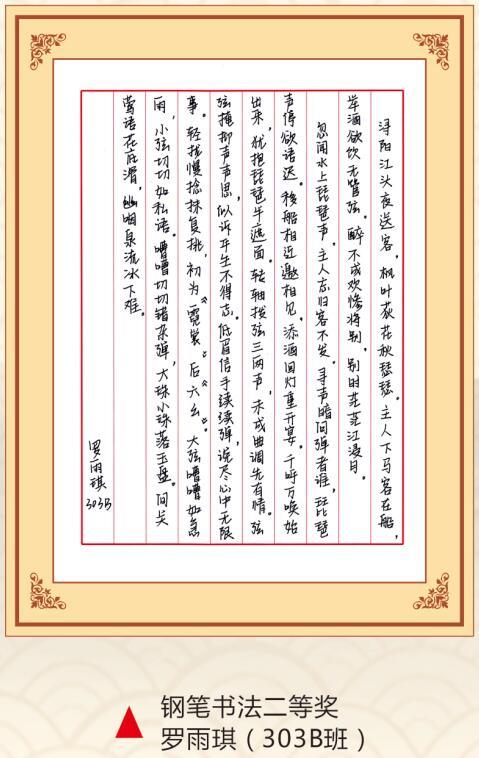 浔阳江头夜送客，枫叶荻花秋瑟瑟。主人下马客在船，
举酒欲饮无管弦。醉不成欢惨将别，别时茫茫江浸月。
忽闻水上琵琶声，主人忘归客不发。寻声暗问弹者谁，琵琶
声停欲语迟。移船相近邀相见，添酒回灯重开宴。千呼万唤始
出来，犹抱琵琶半遮面。转轴拨弦三两声，未成曲调先有情。弦
弦掩抑声声思，似诉平生不得志。低眉信手续续弹，说尽心中无限
事。轻拢慢捻抹复挑，初为《霓裳》后《六幺》。大弦嘈嘈如急
雨，小弦切切如私语。嘈嘈切切错杂弹，大珠小珠落玉盘。间关
莺语花底滑，幽咽泉流冰下难。
罗雨琪
303B
钢笔书法二等奖
罗雨琪（303B班）